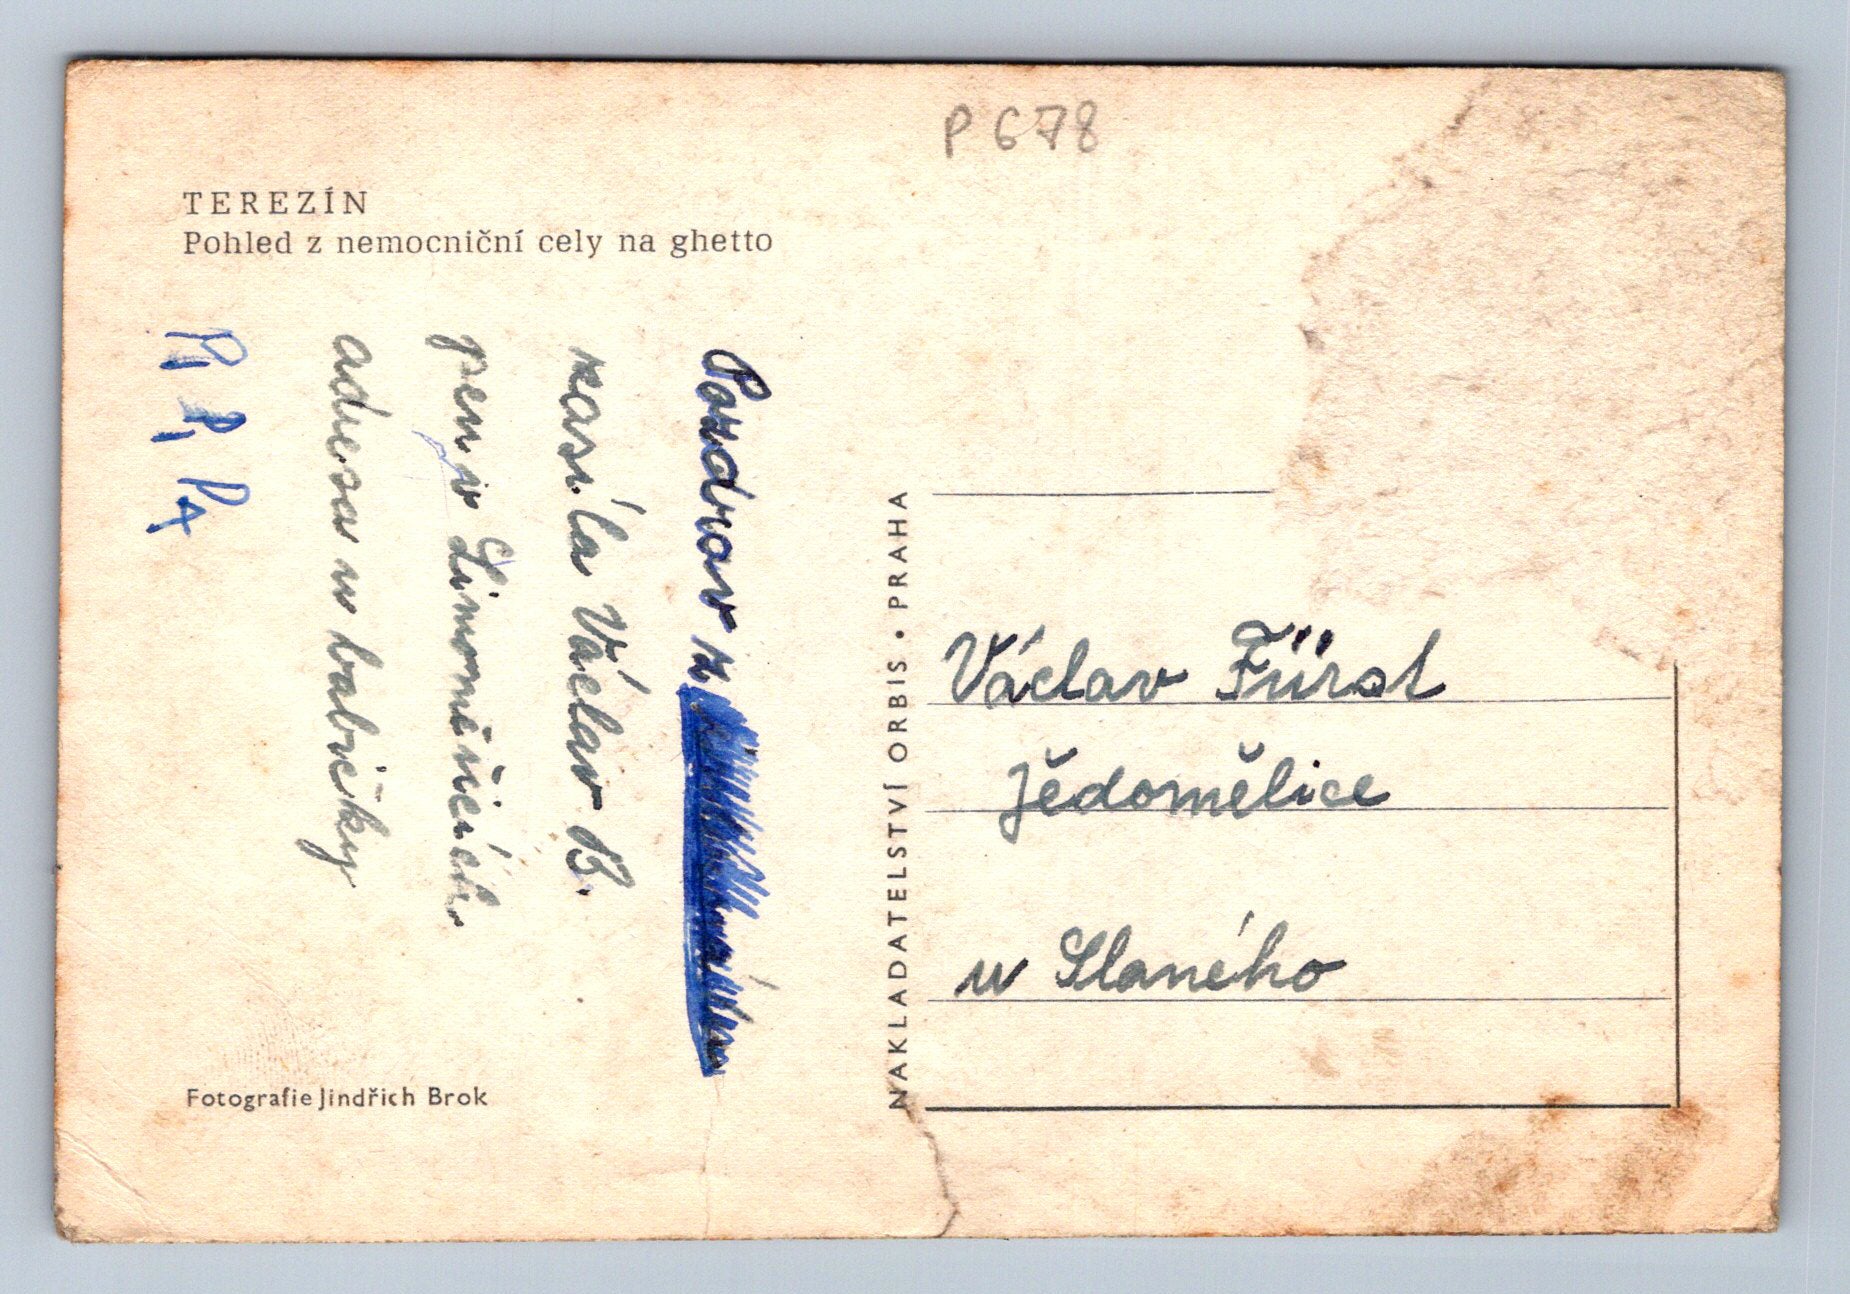 P 678
TEREZÍN
Pohled z nemocniční cely na ghetto
Pozdrav z
zasílá Václav B.
jsem v Litoměřicích
adresa u babičky
NAKLADATELSTVÍ ORBIS • PRAHA
Václav Fürst
Jědomělice
u Slaného
Fotografie Jindřich Brok